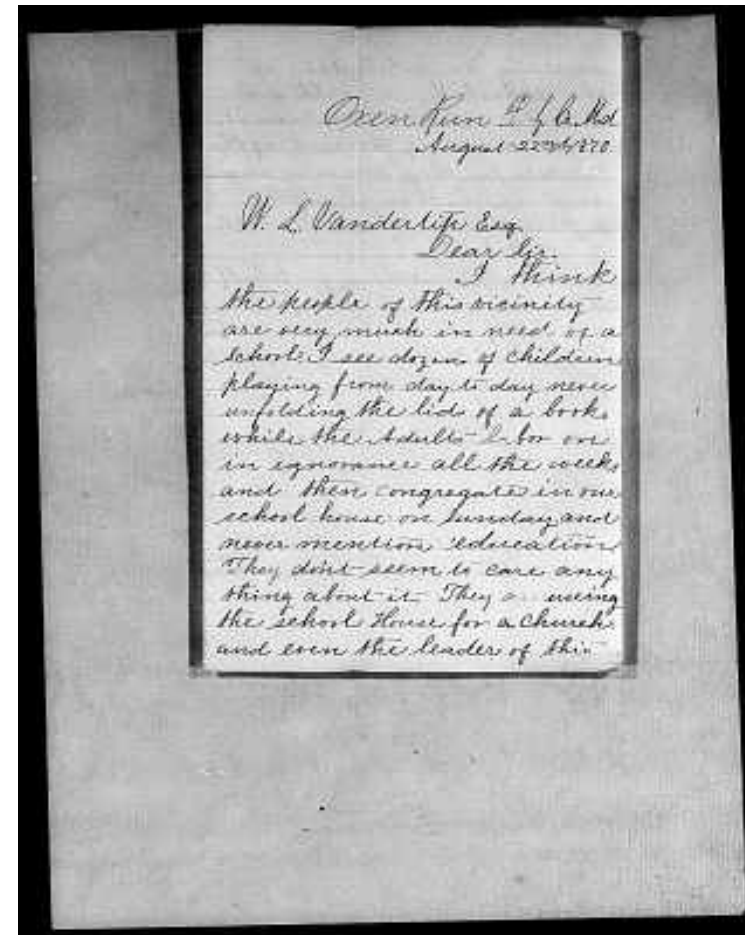 Oxen Run P. G. Co. Md
August 22nd 1870.
W. L. Vanderlip Esq.
Dear Sir.
I think
the people of this vicinity
are very much in need of a
school. I see dozens of children
playing from day to day never
unfolding the lids of a book
while the Adults labor on
in ignorance all the week
and then congregate in our
school house on Sunday and
never mention education
They don't seem to care any
thing about it They are useing
the school House for a Church
and even the leader of this